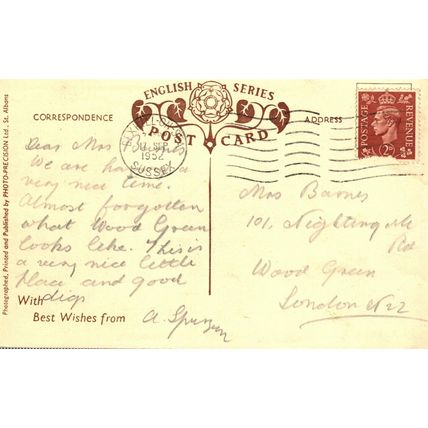 ENGLISH SERIES
POST CARD
CORRESPONDENCE
ADDRESS
POSTAGE
REVENUE
SEP
1952
SUSSEX
Dear Mrs
We are having a
very nice time.
Almost forgotten
what Wood Green
looks like. This is
a very nice little
place and good
digs
With
Best Wishes from
A.
Mrs Barnes
101,
Rd
Wood Green
London N22
Photographed, Printed and Published by PHOTO-PRECISION Ltd., St. Albans